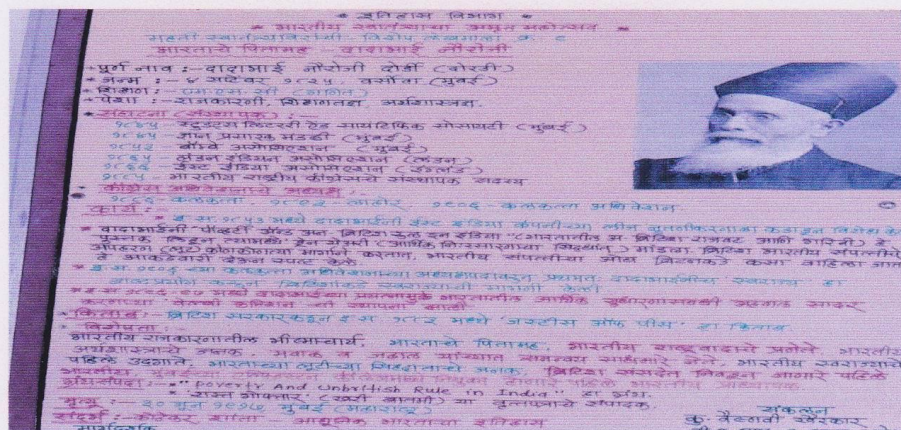 * इतिहास विभाग *
* भारतीय स्वातंत्र्याचा अमृत महोत्सव *
विशेष लेखमाला क्र. ८
भारताचे पितामह - दादाभाई नौरोजी
* पूर्ण नाव :- दादाभाई नौरोजी दोर्डी (
* जन्म :- ४ सप्टेंबर १८२५ (मुंबई)
* शिक्षण :- एम.एस.सी (गणित)
* पेशा :- राजकारणी, शिक्षणतज्ञ, अर्थशास्त्रज्ञ.
* संघटना (संस्थापक) :
१८४५ - स्टुडंट्स लिटररी ऍंड सायंटिफिक सोसायटी (मुंबई)
ज्ञान प्रसारक मंडळी (मुंबई)
१८५२ - बॉम्बे असोसिएशन (मुंबई)
१८६५ - लंडन इंडियन असोसिएशन (लंडन)
१८६६ - ईस्ट इंडिया असोसिएशन (इंग्लंड)
१८८५ - भारतीय राष्ट्रीय काँग्रेसचे संस्थापक सदस्य
* काँग्रेस अधिवेशनाचे अध्यक्ष :-
१८८६ - कलकत्ता, १८९३ - लाहोर, १९०६ - कलकत्ता अधिवेशन.
कार्य :-
* इ.स. १८५३ मध्ये दादाभाईंनी ईस्ट इंडिया कंपनीच्या विरोध
* दादाभाईंनी 'पॉव्हर्टी अँड अन ब्रिटिश रुल इन इंडिया' (भारतातील अ ब्रिटिश राजवट आणि दारिद्र्य) हे
पुस्तक लिहून त्यामध्ये ड्रेन थेअरी (आर्थिक निःस्सारणाचा सिद्धांत) मांडला. ब्रिटिश भारतीय संपत्तीचे
अपहरण (लूट) कोणकोणत्या मार्गाने करतात, भारतीय संपत्तीचा ओघ ब्रिटनकडे कसा वाहिला जातो
हे आकडेवारी देऊन स्पष्ट केले.
* इ.स. १९०६ च्या कलकत्ता अधिवेशनाच्या अध्यक्षपदावरून प्रथमतः दादाभाईंनीच स्वराज्य हा
शब्दप्रयोग करून ब्रिटिशांकडे स्वराज्याची मागणी केली.
मध्ये दादाभाईंच्या प्रयत्नामुळे भारतातील आर्थिक सुधारणासंबंधी अहवाल सादर
करणाऱ्या वेल्बी कमिशन ची स्थापना झाली.
* किताब :- ब्रिटिश सरकारकडून इ.स. १८८३ मध्ये 'जस्टीस ऑफ पीस' हा किताब.
* विशेषता :-
भारतीय राजकारणातील भीष्माचार्य, भारताचे पितामह, भारतीय राष्ट्रवादाचे प्रणेते, भारतीय
अर्थशास्त्राचे जनक, मवाळ व जहाल यांच्यात समन्वय साधणारे नेते, भारतीय स्वराज्याचे
पहिले उद्गाते, भारताच्या लुटीच्या सिद्धांताचे जनक, ब्रिटिश संसदेत निवडून जाणारे पहिले
भारतीय,
ग्रंथसंपदा :- * "Poverty And Unbritish Rule in India" हा ग्रंथ.
* 'रास्त गोफ्तार' (खरी बातमी) या वृत्तपत्राचे संपादक.
मृत्यू :- ३० जून १९१७ मुंबई (महाराष्ट्र)
संदर्भ :- कोळेकर शाला - आधुनिक भारताचा इतिहास
संकलन
कु. वैष्णवी